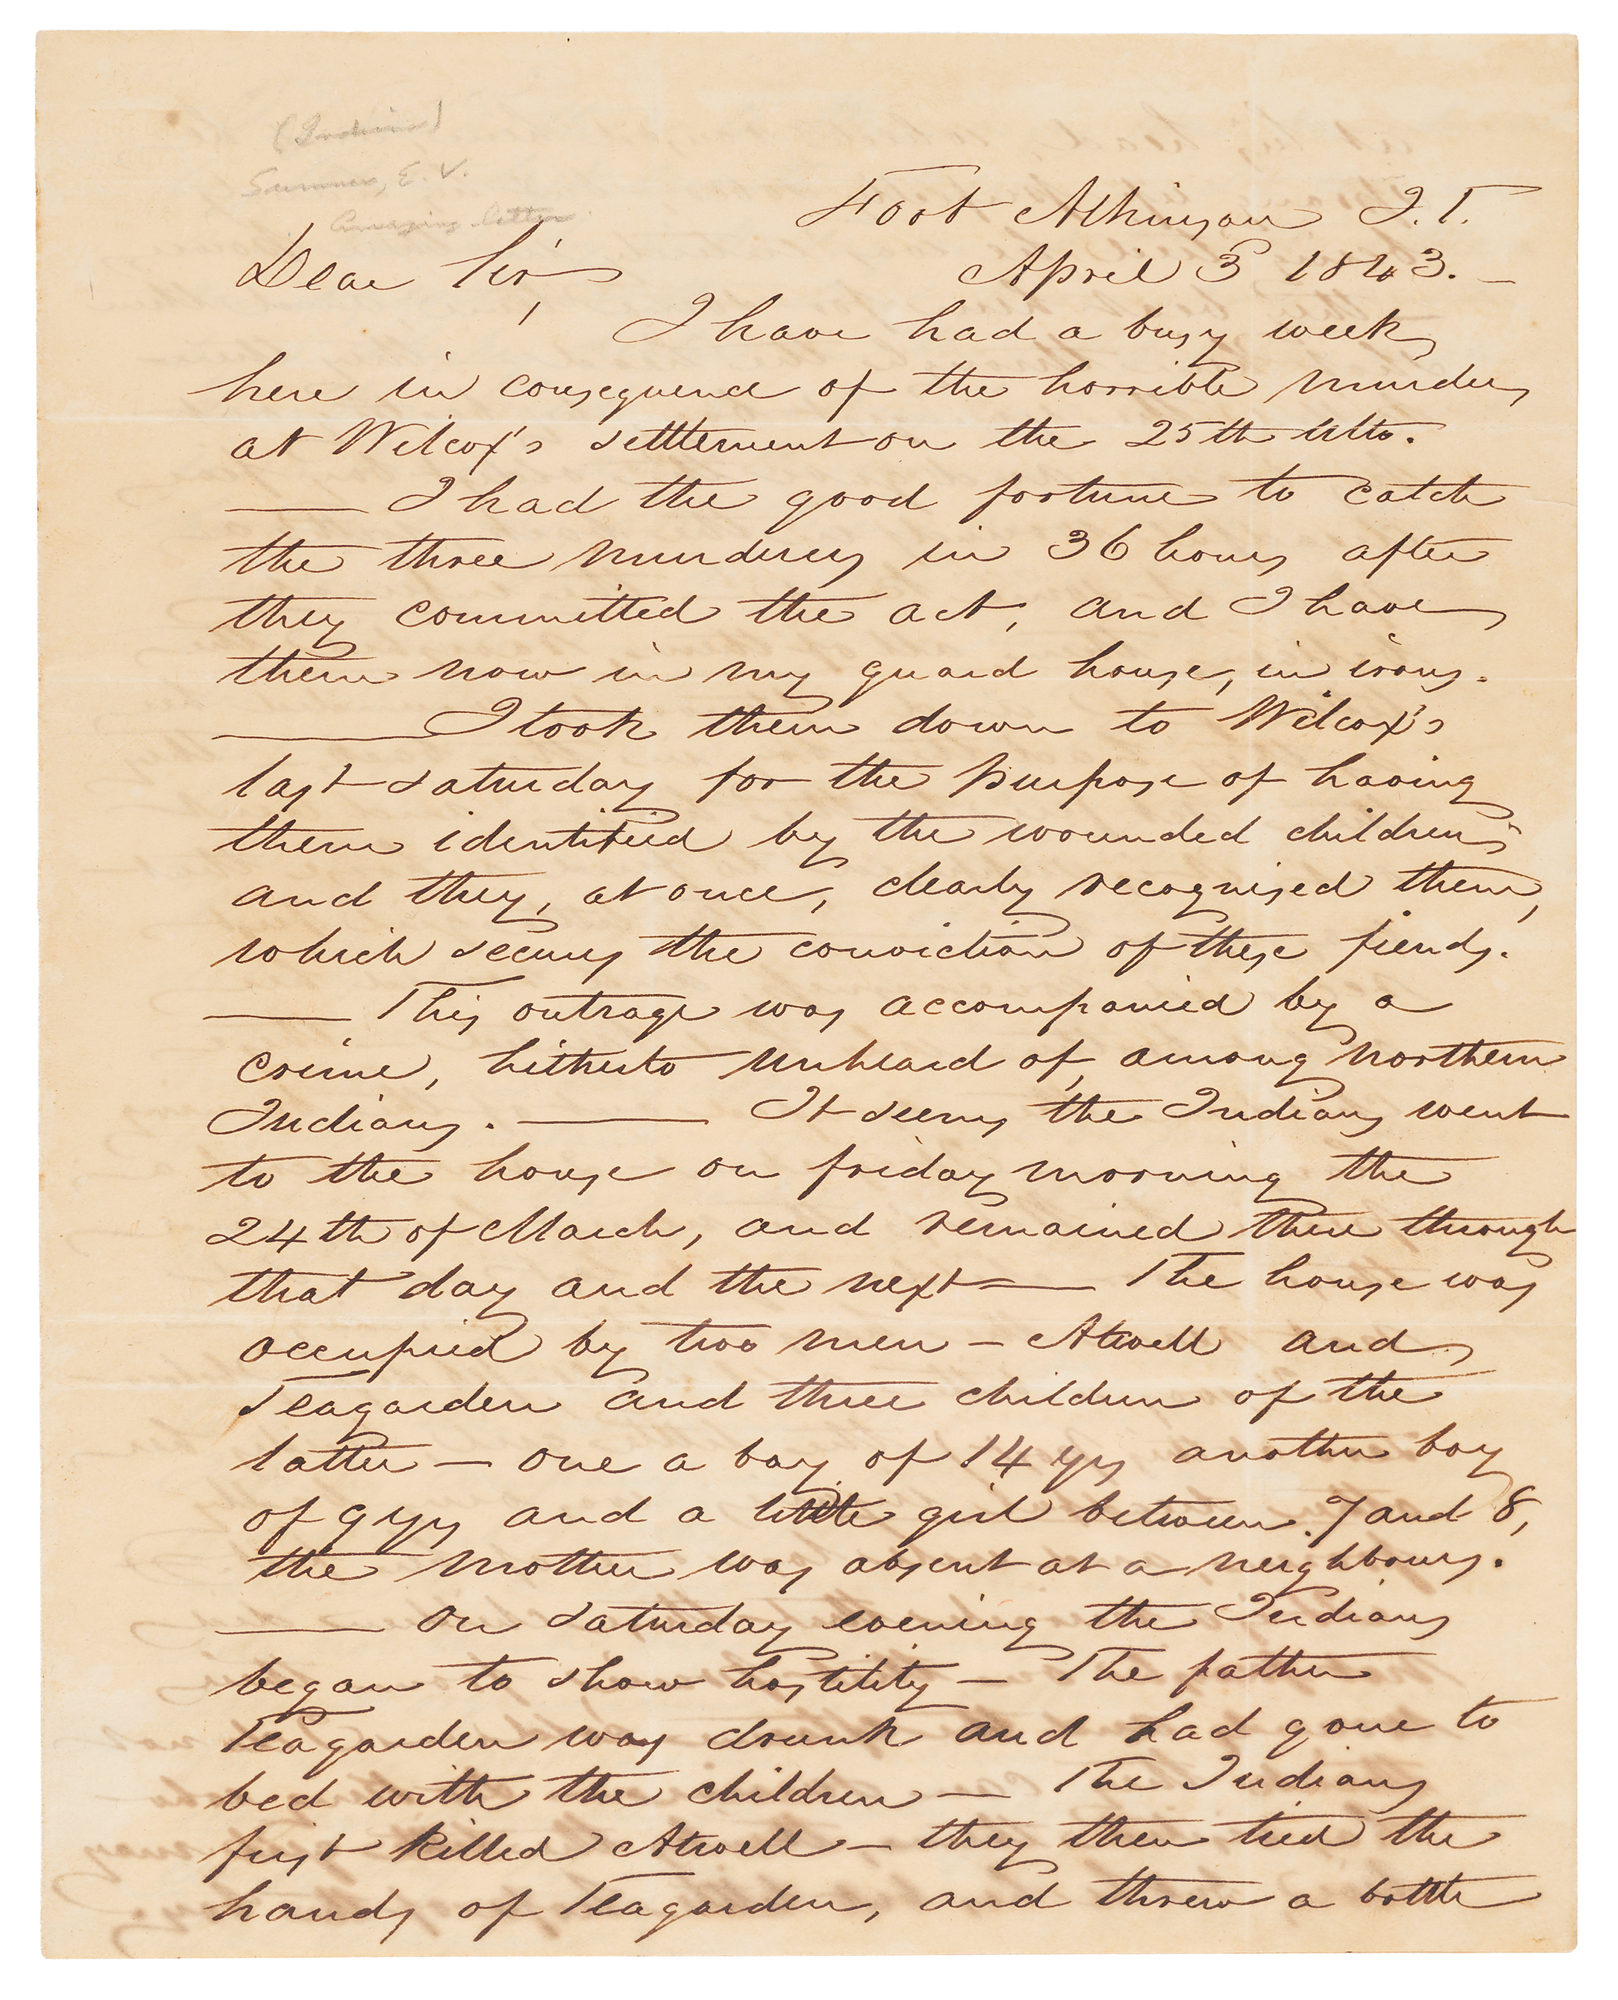 (Indians)
Sumner, E. V.
Amazing letter
Fort Atkinson I. T.
April 3 1843.
Dear Sir,
I have had a busy week
here in consequence of the horrible murders
at Wilcox's settlement on the 25th ulto.
— I had the good fortune to catch
the three murderers in 36 hours after
they committed the act, and I have
them now in my guard house, in irons.
— I took them down to Wilcox's
last saturday for the purpose of having
them identified by the wounded children,
and they, at once, clearly recognised them,
which secures the conviction of these fiends.
— This outrage was accompanied by a
crime, hitherto unheard of, among northern
Indians. — It seems the Indians went
to the house on friday morning the
24th of March, and remained there through
that day and the next — The house was
occupied by two men — Atwell and
Teagarden and three children of the
latter — one a boy of 14 ys another boy
of 9 ys and a little girl between 7 and 8,
the mother was absent at a neighbours.
— On saturday evening the Indians
began to show hostility — The father
Teagarden was drunk and had gone to
bed with the children — The Indians
first killed Atwell — they then tied the
hands of Teagarden, and threw a bottle